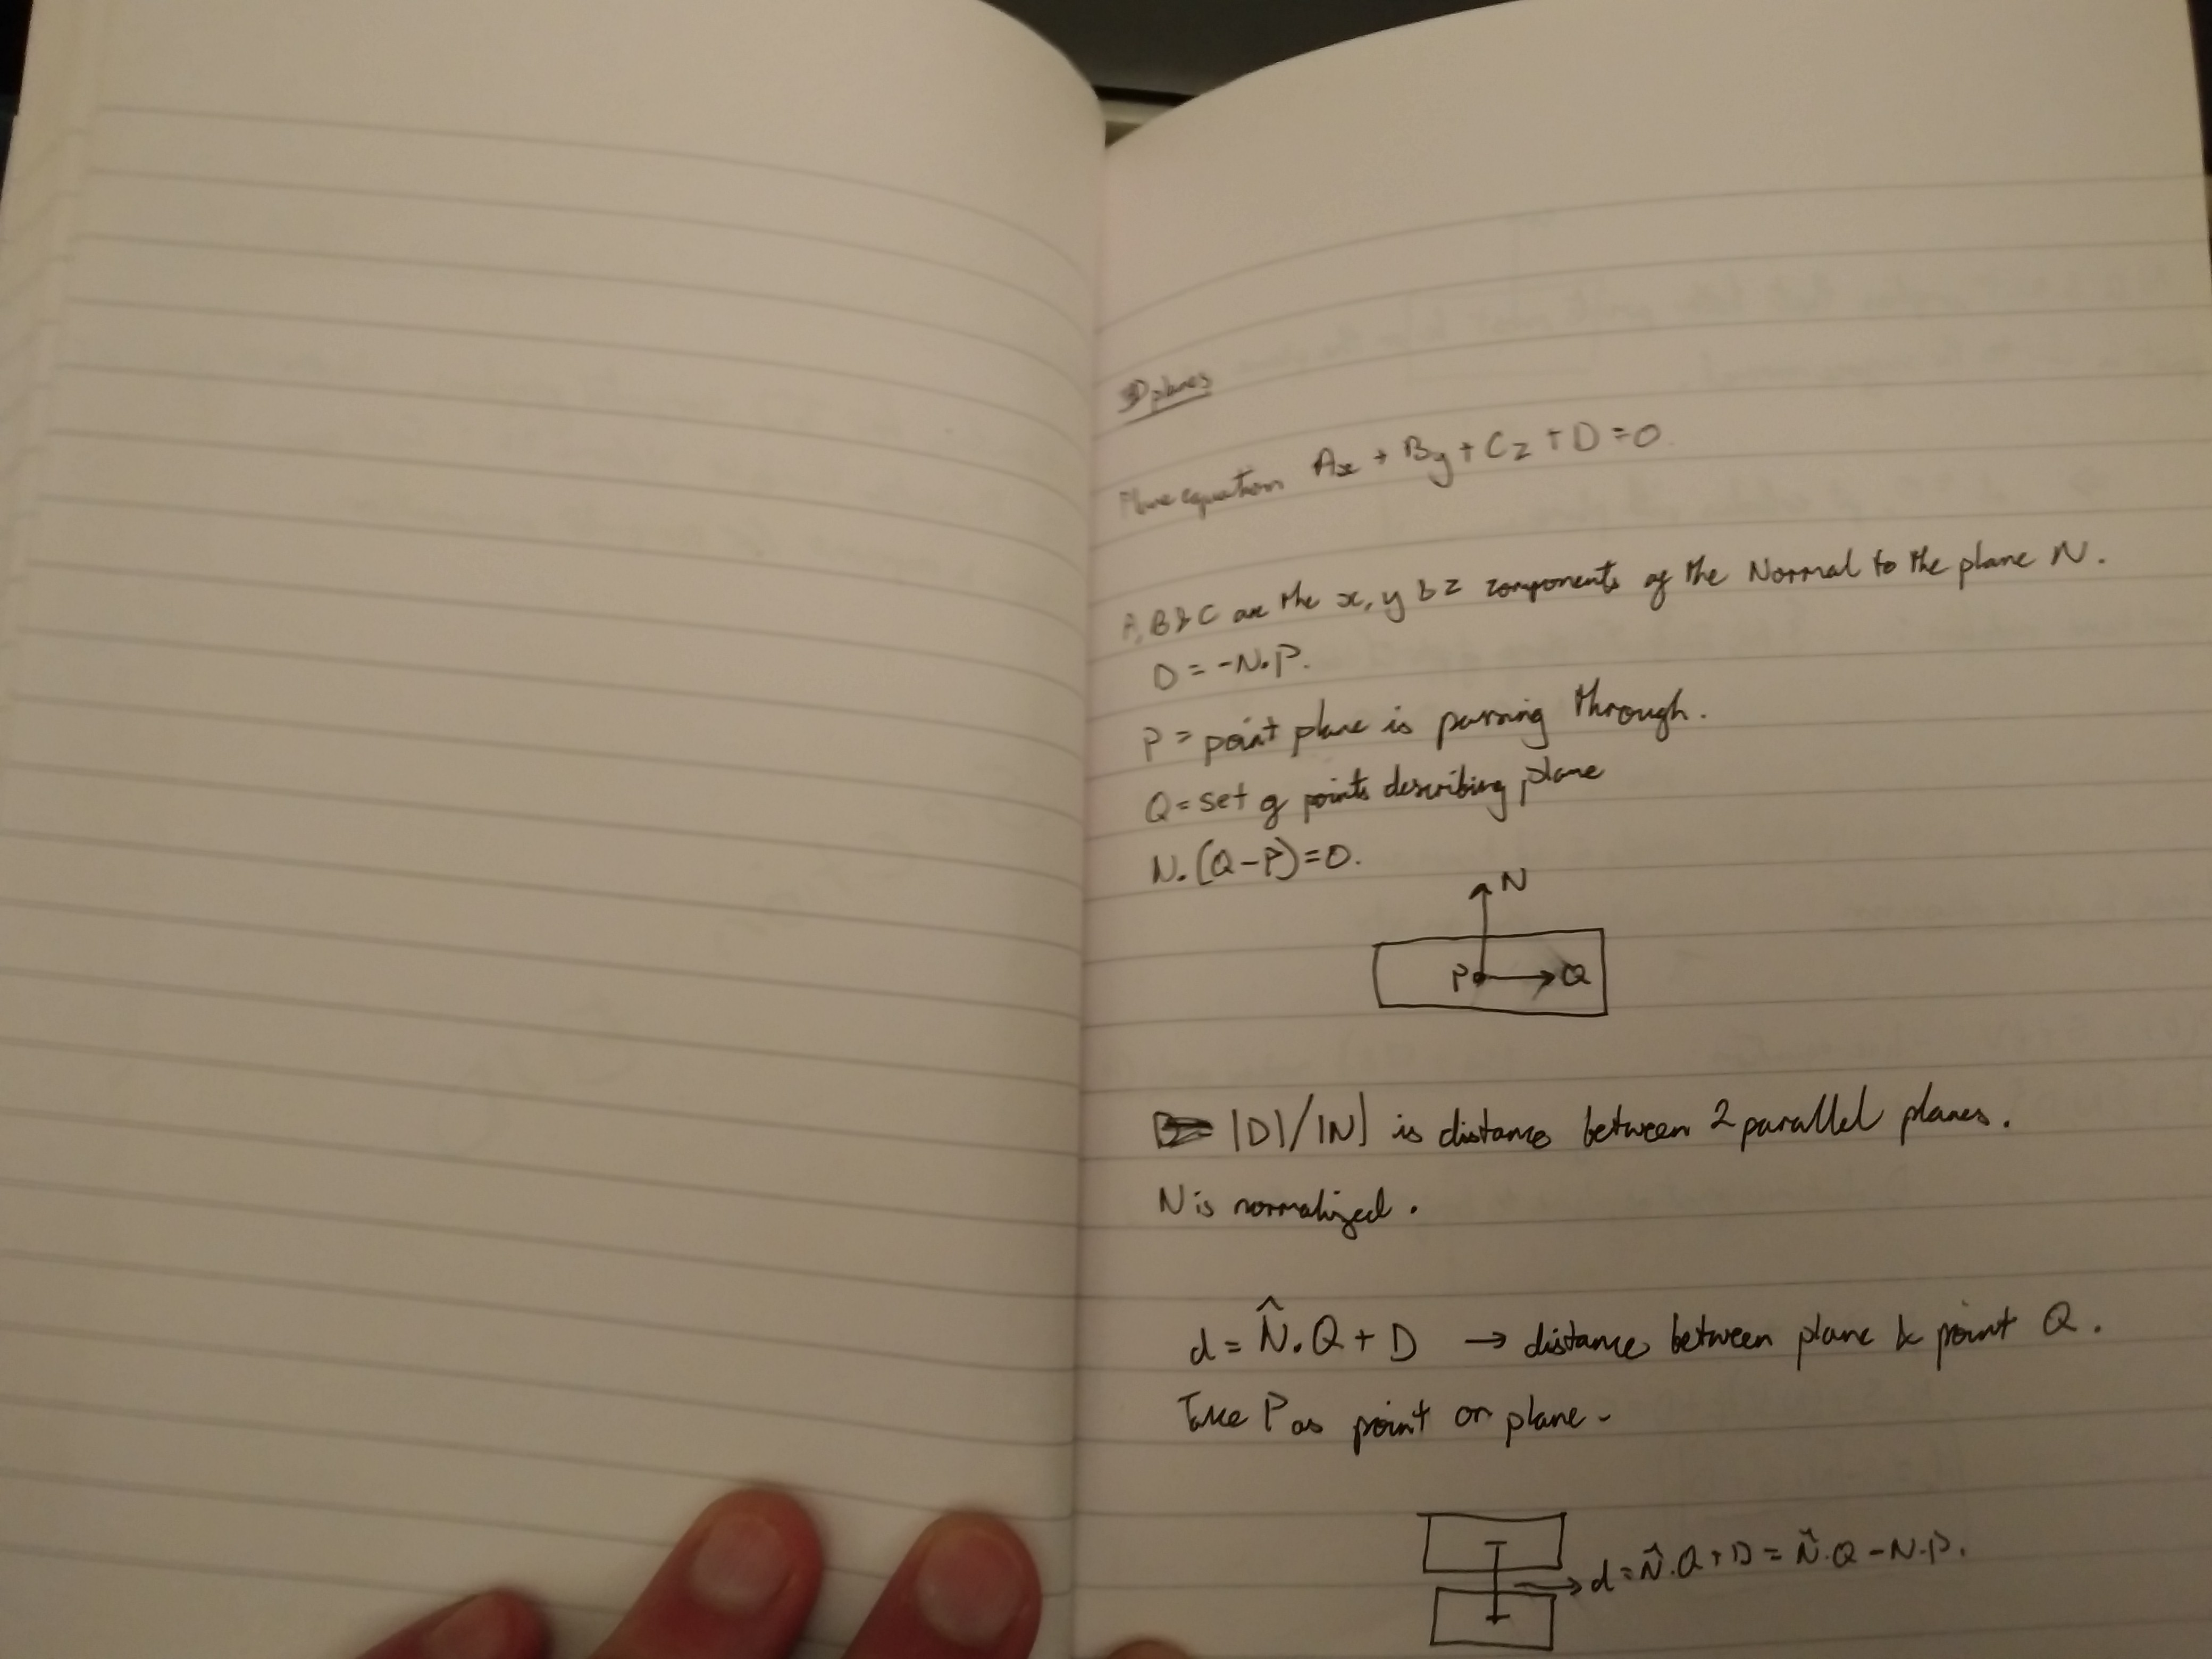 3D planes
Plane equation Ax + By + Cz + D = 0.
A, B & C are the x, y & z components of the Normal to the plane N.
D = -N.P.
P = point plane is passing through.
Q = set of points describing plane
N.(Q-P)=0.
N
P Q
|D|/|N| is distance between 2 parallel planes.
N is normalized.
d = N̂.Q + D → distance between plane & point Q.
Take P as point on plane.
d = N̂.Q + D = N̂.Q - N.P.